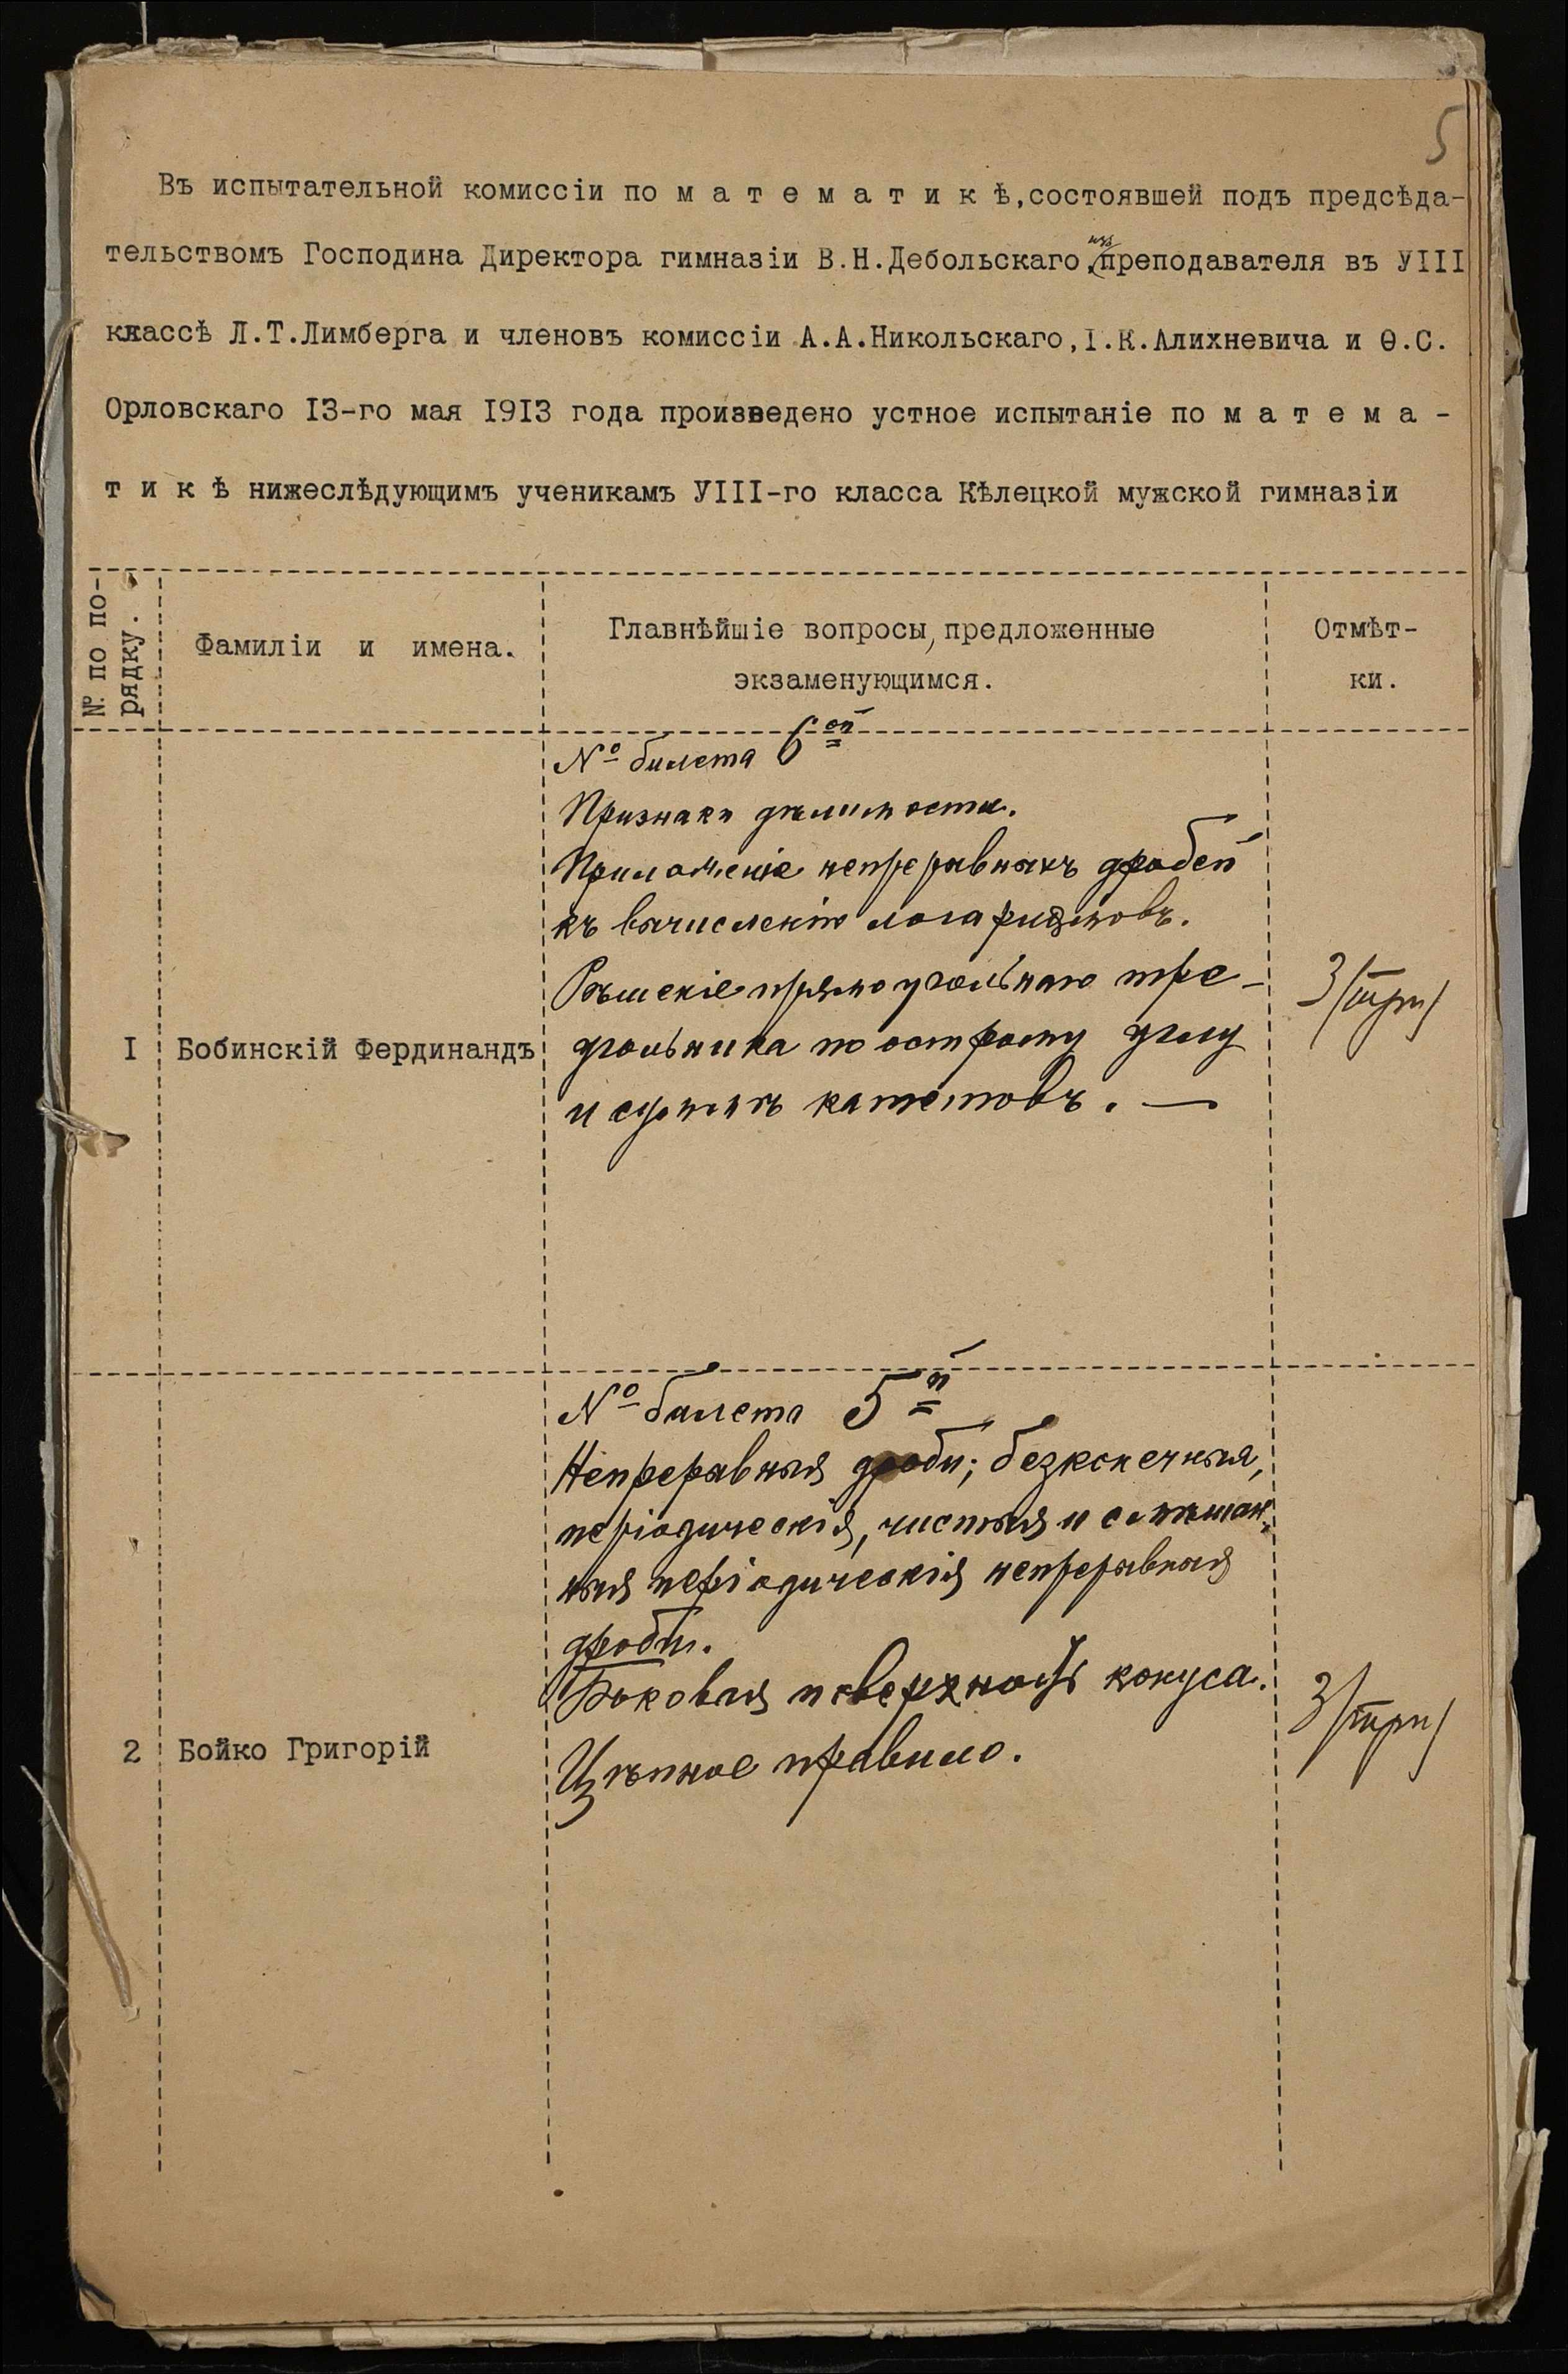 5
Въ испытательной комиссіи по м а т е м а т и к ѣ, состоявшей подъ предсѣда-
изъ
тельствомъ Господина Директора гимназіи В.Н.Дебольскаго, преподавателя въ УІІІ
классѣ Л.Т.Лимберга и членовъ комиссіи А.А.Никольскаго, І.К.Алихневича и Ѳ.С.
Орловскаго I3-го мая I9I3 года произведено устное испытаніе по м а т е м а -
т и к ѣ нижеслѣдующимъ ученикамъ УІІІ-го класса Кѣлецкой мужской гимназіи
№ по по-
рядку.
Фамиліи и имена.
Главнѣйшіе вопросы, предложенные
экзаменующимся.
Отмѣт-
ки.
№ билета 6ой
Признаки дѣлимости.
Приложеніе непрерывныхъ дробей
къ вычисленію логариѳмовъ.
Рѣшеніе прямоугольнаго тре-
угольника по острому углу
и суммѣ катетовъ. —
I
Бобинскій Фердинандъ
3/три/
№ билета 5й
Непрерывныя дроби; безконечныя,
періодическія, чистыя и смѣшан-
ныя періодическія непрерывныя
дроби.
Боковая поверхность конуса.
Цѣпное правило.
2
Бойко Григорій
3/три/